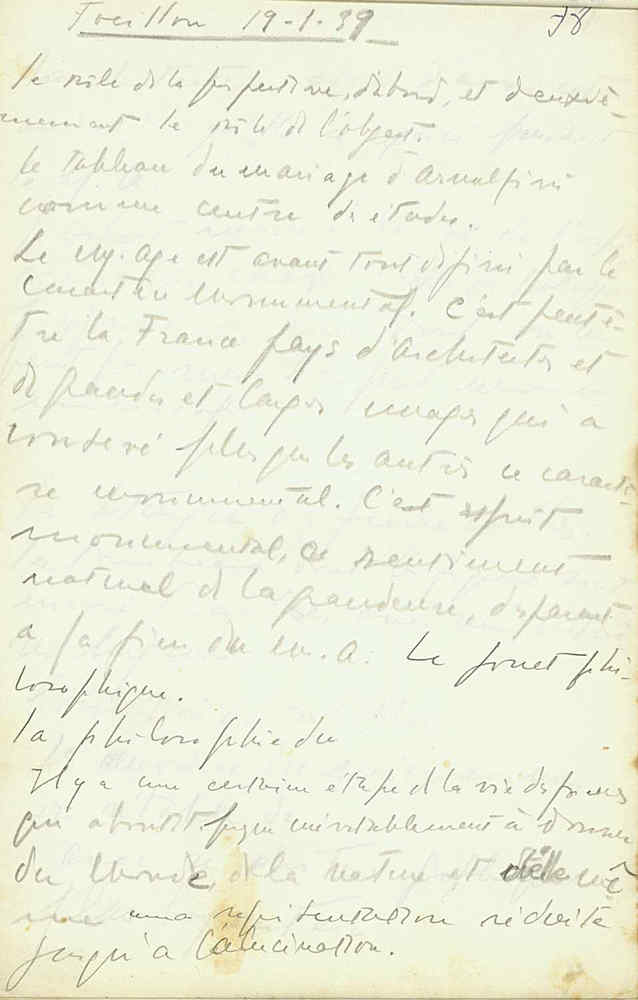 Focillon 19-1-39 78
le rôle de la perspective, d'abord, et deuxiè-
mement le rôle de l'objet.
Le tableau du mariage d'Arnolfini
comme centre de études.
Le moy. age est avant tout défini par le
caractère monumental. C'est peut ê-
tre la France pays d'architectes et
de grandes et larges images qui a
conservé plus que les autres ce caractè-
re monumental. C'est esprit
monumental, ce sentiment
naturel de la grandeur, disparait
a la fin du m. a. Le jouet phi-
losophique.
la philosophie du
Il y a une certaine étape de la vie des formes
qui aboutit presque inévitablement à donner
du Monde, de la nature et d'elle mê-
me una représentation réduite
jusqu'a l'alucination.